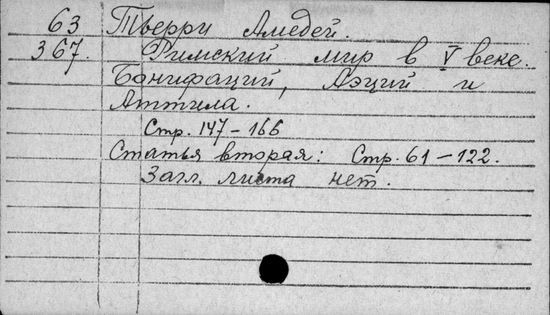 63 Тьерри Амедей.
367. Римский мир в V веке.
Бонифаций, Аэций и
Аттила.
Стр. 147-166
Статья вторая: Стр. 61-122.
Загл. листа нет.